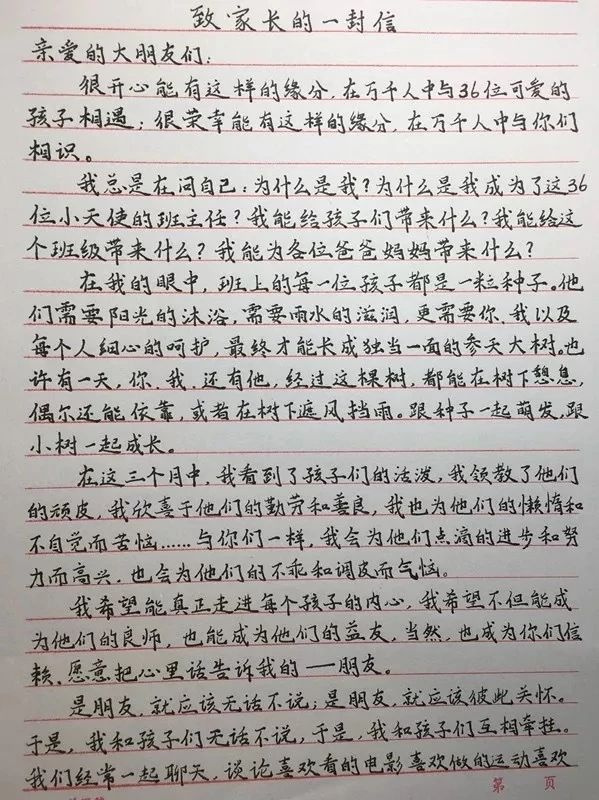 致家长的一封信
亲爱的大朋友们：
很开心能有这样的缘分，在万千人中与36位可爱的
孩子相遇；很荣幸能有这样的缘分，在万千人中与你们
相识。
我总是在问自己：为什么是我？为什么是我成为了这36
位小天使的班主任？我能给孩子们带来什么？我能给这
个班级带来什么？我能为各位爸爸妈妈带来什么？
在我的眼中，班上的每一位孩子都是一粒种子。他
们需要阳光的沐浴，需要雨水的滋润，更需要你、我以及
每个人细心的呵护，最终才能长成独当一面的参天大树。也
许有一天，你、我、还有他，经过这棵树，都能在树下憩息，
偶尔还能依靠，或者在树下遮风挡雨。跟种子一起萌发，跟
小树一起成长。
在这三个月中，我看到了孩子们的活泼，我领教了他们
的顽皮，我欣喜于他们的勤劳和善良，我也为他们的懒惰和
不自觉而苦恼……与你们一样，我会为他们点滴的进步和努
力而高兴，也会为他们的不乖和调皮而气恼。
我希望能真正走进每个孩子的内心，我希望不但能成
为他们的良师，也能成为他们的益友，当然，也成为你们信
赖、愿意把心里话告诉我的——朋友。
是朋友，就应该无话不说；是朋友，就应该彼此关怀。
于是，我和孩子们无话不说，于是，我和孩子们互相牵挂。
我们经常一起聊天，谈论喜欢看的电影喜欢做的运动喜欢
第 页